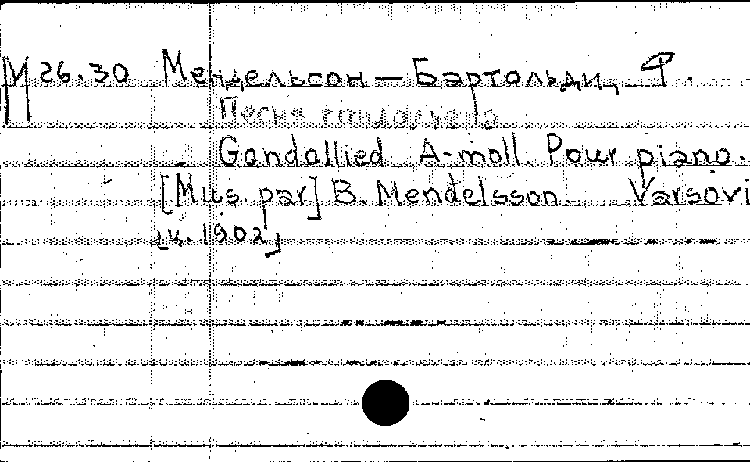 М 26.30 Мендельсон — Бартольди, Ф.
Песня гондольера
Gondallied A-moll. Pour piano.
[Mus. par] B. Mendelsson. Varsovi
[ц. 1902]